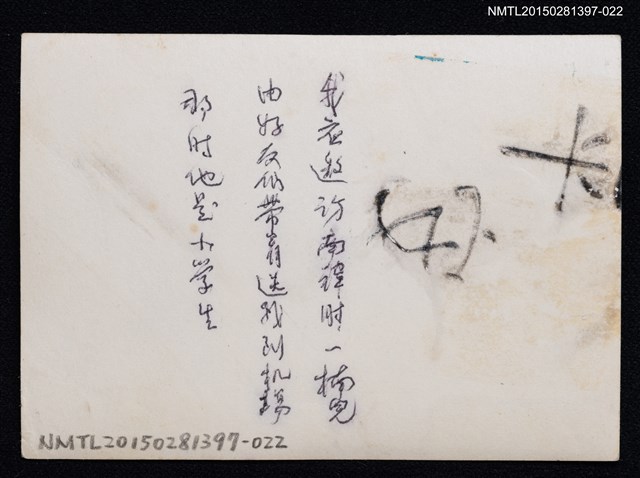 NMTL20150281397-022
我应邀访南韓时,一楠兒
由好友们带着送我到机場
那时他是小学生
NMTL20150281397-022